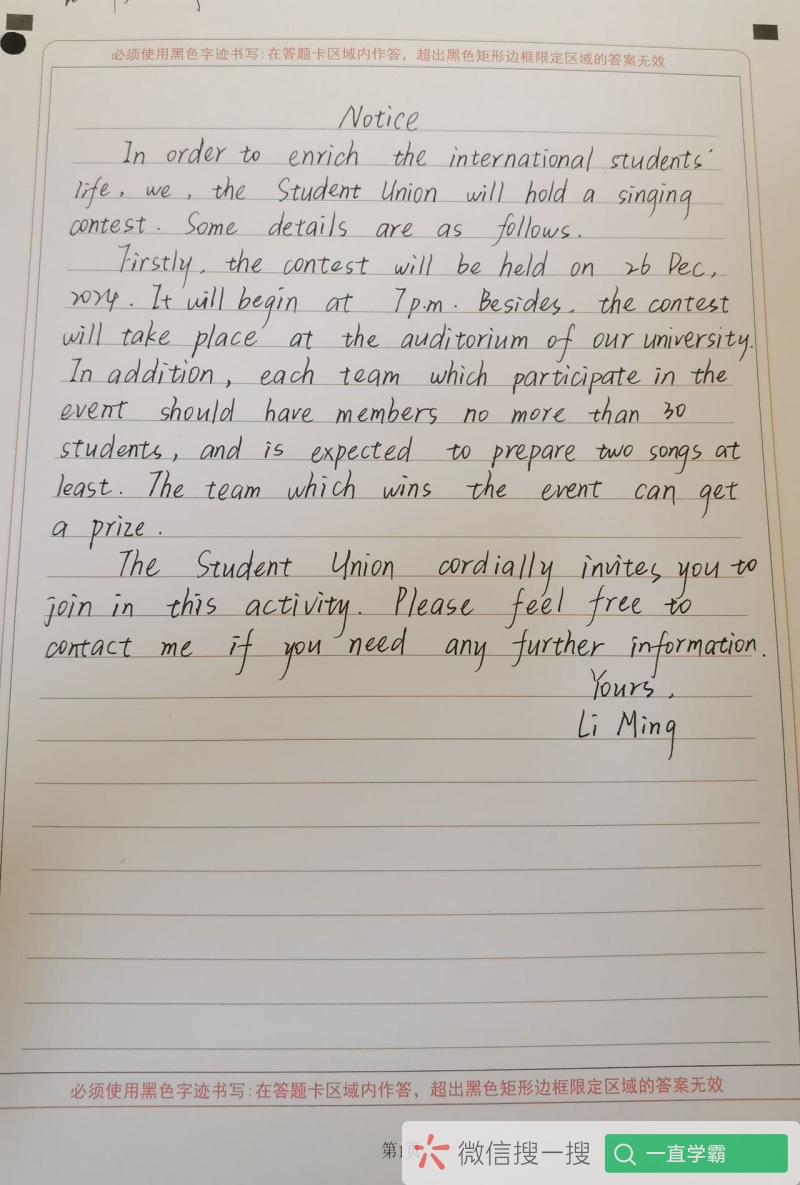 必须使用黑色字迹书写:在答题卡区域内作答，超出黑色矩形边框限定区域的答案无效
Notice
In order to enrich the international students'
life, we, the Student Union will hold a singing
contest. Some details are as follows.
Firstly, the contest will be held on 26 Dec,
2024. It will begin at 7p.m. Besides, the contest
will take place at the auditorium of our university.
In addition, each team which participate in the
event should have members no more than 30
students, and is expected to prepare two songs at
least. The team which wins the event can get
a prize.
The Student Union cordially invites you to
join in this activity. Please feel free to
contact me if you need any further information.
Yours,
Li Ming
必须使用黑色字迹书写:在答题卡区域内作答，超出黑色矩形边框限定区域的答案无效
第1页
微信搜一搜
一直学霸